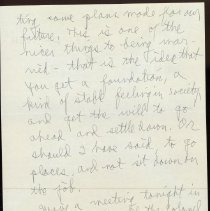 ting some plans made for our
future. This is one of the
nicer things to being mar-
ried - that is the idea that
you get a foundation, a
kind of stable feeling in society
and get the will to go
ahead and settle down. Or
should I have said, to go
places, and not sit down on
the job.
a meeting tonight in
the